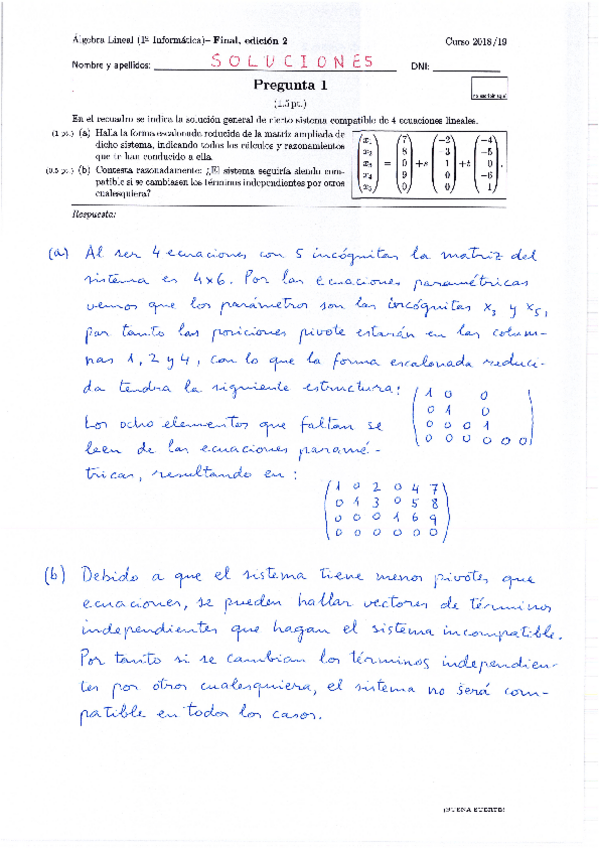 Álgebra Lineal (1º Informática)– Final, edición 2 Curso 2018/19
Nombre y apellidos: SOLUCIONES DNI:
Pregunta 1
(1.5 pt.)
En el recuadro se indica la solución general de cierto sistema compatible de 4 ecuaciones lineales.
(1 pt.) (a) Halla la forma escalonada reducida de la matriz ampliada de
dicho sistema, indicando todos los cálculos y razonamientos
que te han conducido a ella.
(0.5 pt.) (b) Contesta razonadamente: ¿El sistema seguiría siendo com-
patible si se cambiasen los términos independientes por otros
cualesquiera?
(x₁ x₂ x₃ x₄ x₅) = (7 8 0 9 0) + s (-2 -3 1 0 0) + t (-4 -5 0 -6 1).
Respuesta:
(a) Al ser 4 ecuaciones con 5 incógnitas la matriz del
sistema es 4x6. Por las ecuaciones paramétricas
vemos que los parámetros son las incógnitas x₃ y x₅,
por tanto las posiciones pivote estarán en las colum-
nas 1, 2 y 4, con lo que la forma escalonada reduci-
da tendra la siguiente estructura:
1 0 0
0 1 0
0 0 0 1
0 0 0 0 0 0
Los ocho elementos que faltan se
leen de las ecuaciones paramé-
tricas, resultando en:
1 0 2 0 4 7
0 1 3 0 5 8
0 0 0 1 6 9
0 0 0 0 0 0
(b) Debido a que el sistema tiene menos pivotes que
ecuaciones, se pueden hallar vectores de términos
independientes que hagan el sistema incompatible.
Por tanto si se cambian los términos independien-
tes por otros cualesquiera, el sistema no será com-
patible en todos los casos.
(BUENA SUERTE)